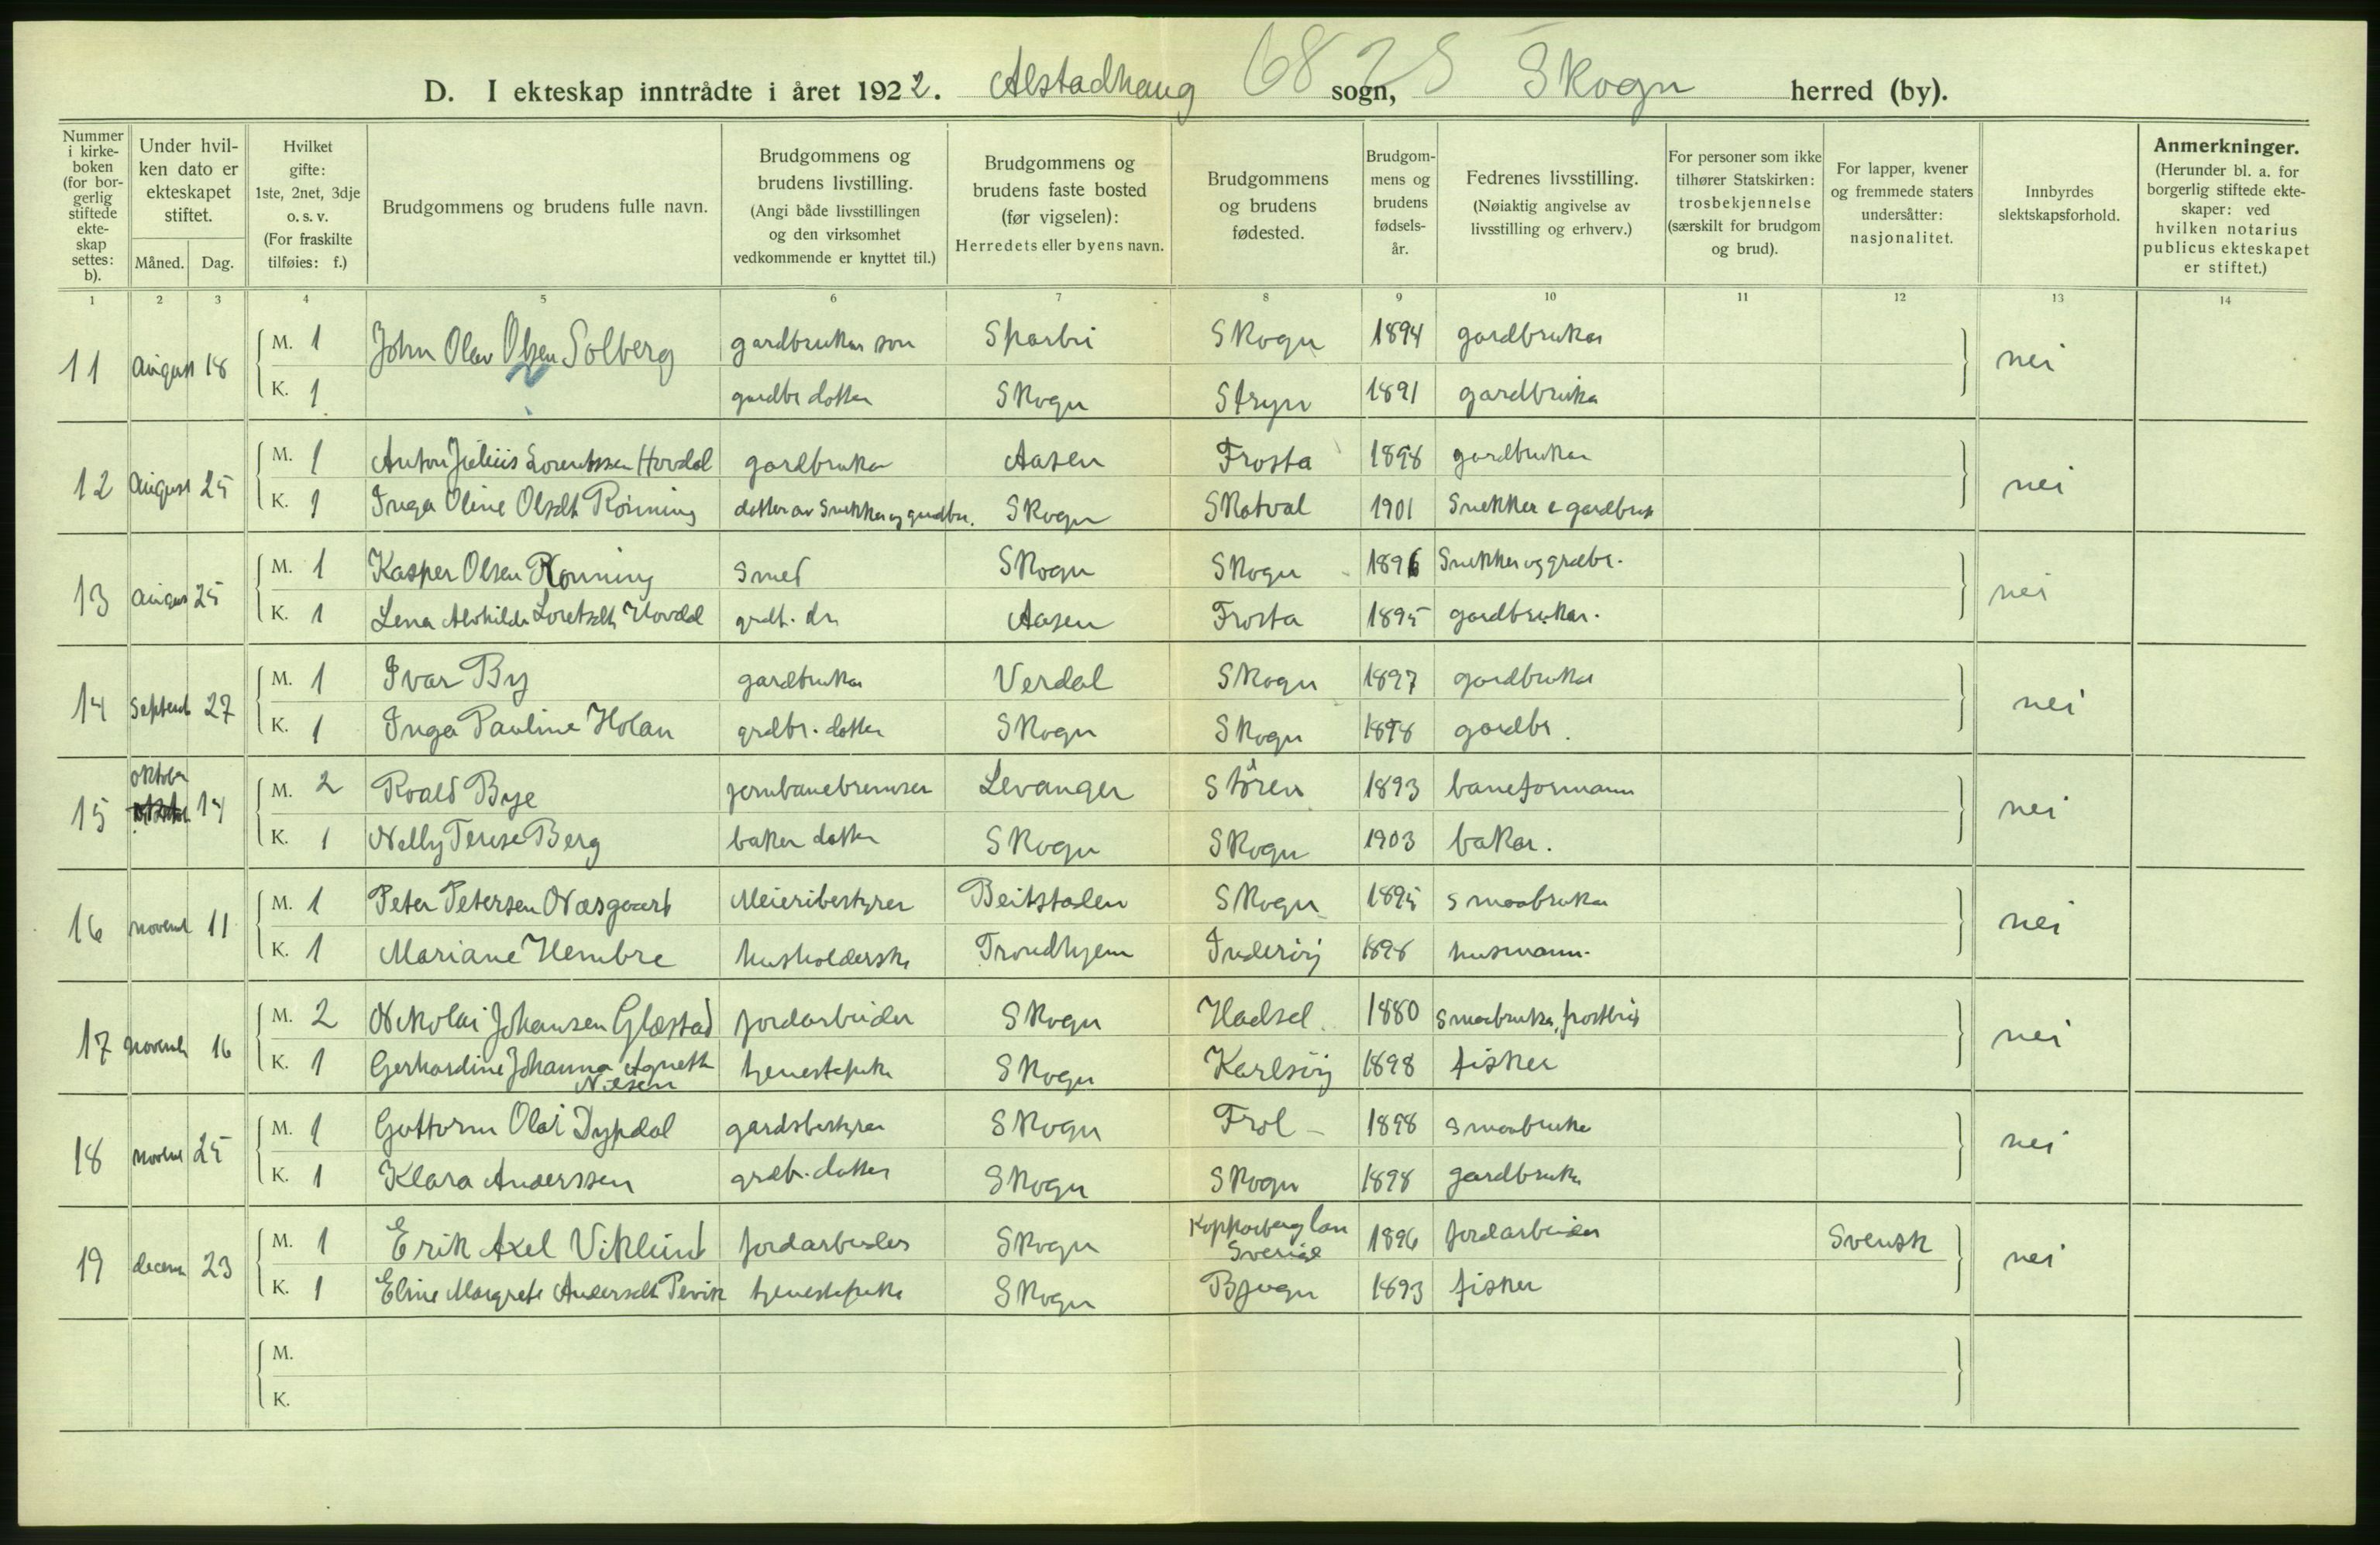 D. I ekteskap inntrådte i året 1922. Alstadhaug sogn, Skogn herred (by).
6825
Nummer i kirke-boken (for bor-gerlig stiftede ekte-skap settes: b).
Under hvil-ken dato er ekteskapet stiftet.
Måned. Dag.
Hvilket gifte: 1ste, 2net, 3dje o. s. v. (For fraskilte tilføies: f.)
Brudgommens og brudens fulle navn.
Brudgommens og brudens livstilling. (Angi både livsstillingen og den virksomhet vedkommende er knyttet til.)
Brudgommens og brudens faste bosted (før vigselen): Herredets eller byens navn.
Brudgommens og brudens fødested.
Brudgom-mens og brudens fødsels-år.
Fedrenes livsstilling. (Nøiaktig angivelse av livsstilling og erhverv.)
For personer som ikke tilhører Statskirken: trosbekjennelse (særskilt for brudgom og brud).
For lapper, kvener og fremmede staters undersåtter: nasjonalitet.
Innbyrdes slektskapsforhold.
Anmerkninger. (Herunder bl. a. for borgerlig stiftede ekte-skaper: ved hvilken notarius publicus ekteskapet er stiftet.)
1 2 3 4 5 6 7 8 9 10 11 12 13 14
11 August 18 M. 1 John Olav Olsen Solberg gardbrukar son Sparbu Skogn 1894 gardbrukar nei
K. 1 gardbr dotter Skogn Stryn 1891 gardbrukar
12 August 25 M. 1 Anton Julius Lorentssen Hovdal gardbrukar Aasen Frosta 1898 gardbrukar nei
K. 1 Inga Oline Olsdt Rönning dotter av Snekker og gardbr. Skogn Skatval 1901 Snekker & gardbruk
13 August 25 M. 1 Kasper Olsen Rönning Smed Skogn Skogn 1896 Snekker og grdbr. nei
K. 1 Lena Alvhilde Loretsdt Hovdal grdb. dr Aasen Frosta 1895 gardbrukar.
14 Septemb 27 M. 1 Ivar By gardbrukar Verdal Skogn 1897 gardbrukar nei
K. 1 Inga Pauline Holan grdbr. dotter Skogn Skogn 1898 gardbr.
15 oktober 14 M. 2 Roald Bye jernbanebremser Levanger Stören 1893 baneformann nei
K. 1 Nelly Terese Berg baker dotter Skogn Skogn 1903 bakar.
16 novemb 11 M. 1 Peter Petersen Næsgaard Meieribestyrer Beitstaden Skogn 1895 smaabrukar nei
K. 1 Mariane Hembre husholderske Trondhjem Inderöy 1898 husmann.
17 novemb 16 M. 2 Nikolai Johansen Glæstad jordarbeider Skogn Hadsel 1880 smaabruker, nei
K. 1 Gerhardine Johanna Agneth
Nilsen tjenestepike Skogn Karlsöy 1898 fisker
18 novem 25 M. 1 Guttorm Olai Dypdal gardsbestyrer Skogn Frol 1898 smaabruker nei
K. 1 Klara Anderssen grdbr. dotter Skogn Skogn 1898 gardbruker
19 decem 23 M. 1 Erik Axel Viklund jordarbeider Skogn Kopparberg län
Sverige 1896 jordarbeider Svensk nei
K. 1 Eline Margrete Andersdt Pevik tjenestepike Skogn Bjugn 1893 fisker
M.
K.